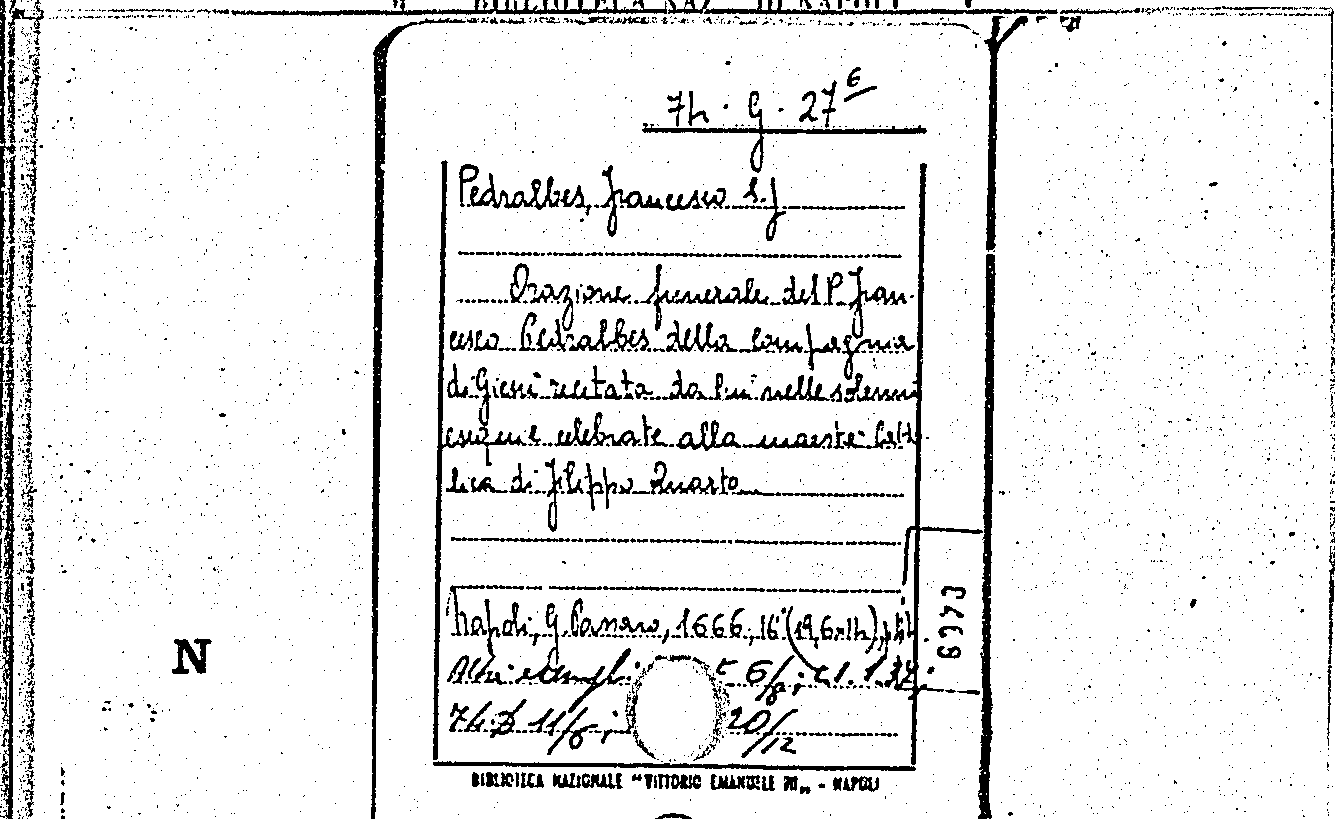 BIBLIOTECA NAZ DI NAPOLI
74. G. 27 6
Pedralbes, Francesco S.J
Orazione funerale del P. Fran-
cesco Pedralbes della Compagnia
di Giesù recitata da lui nelle solenni
esequie celebrate alla maestà Catt.
lica di Filippo Quarto
Napoli, G. Passaro, 1666, 16° (19,6x14), p.
Altri esempli 6/
74. 11/6; 20/12
BIBLIOTECA NAZIONALE "VITTORIO EMANUELE III„ - NAPOLI
N